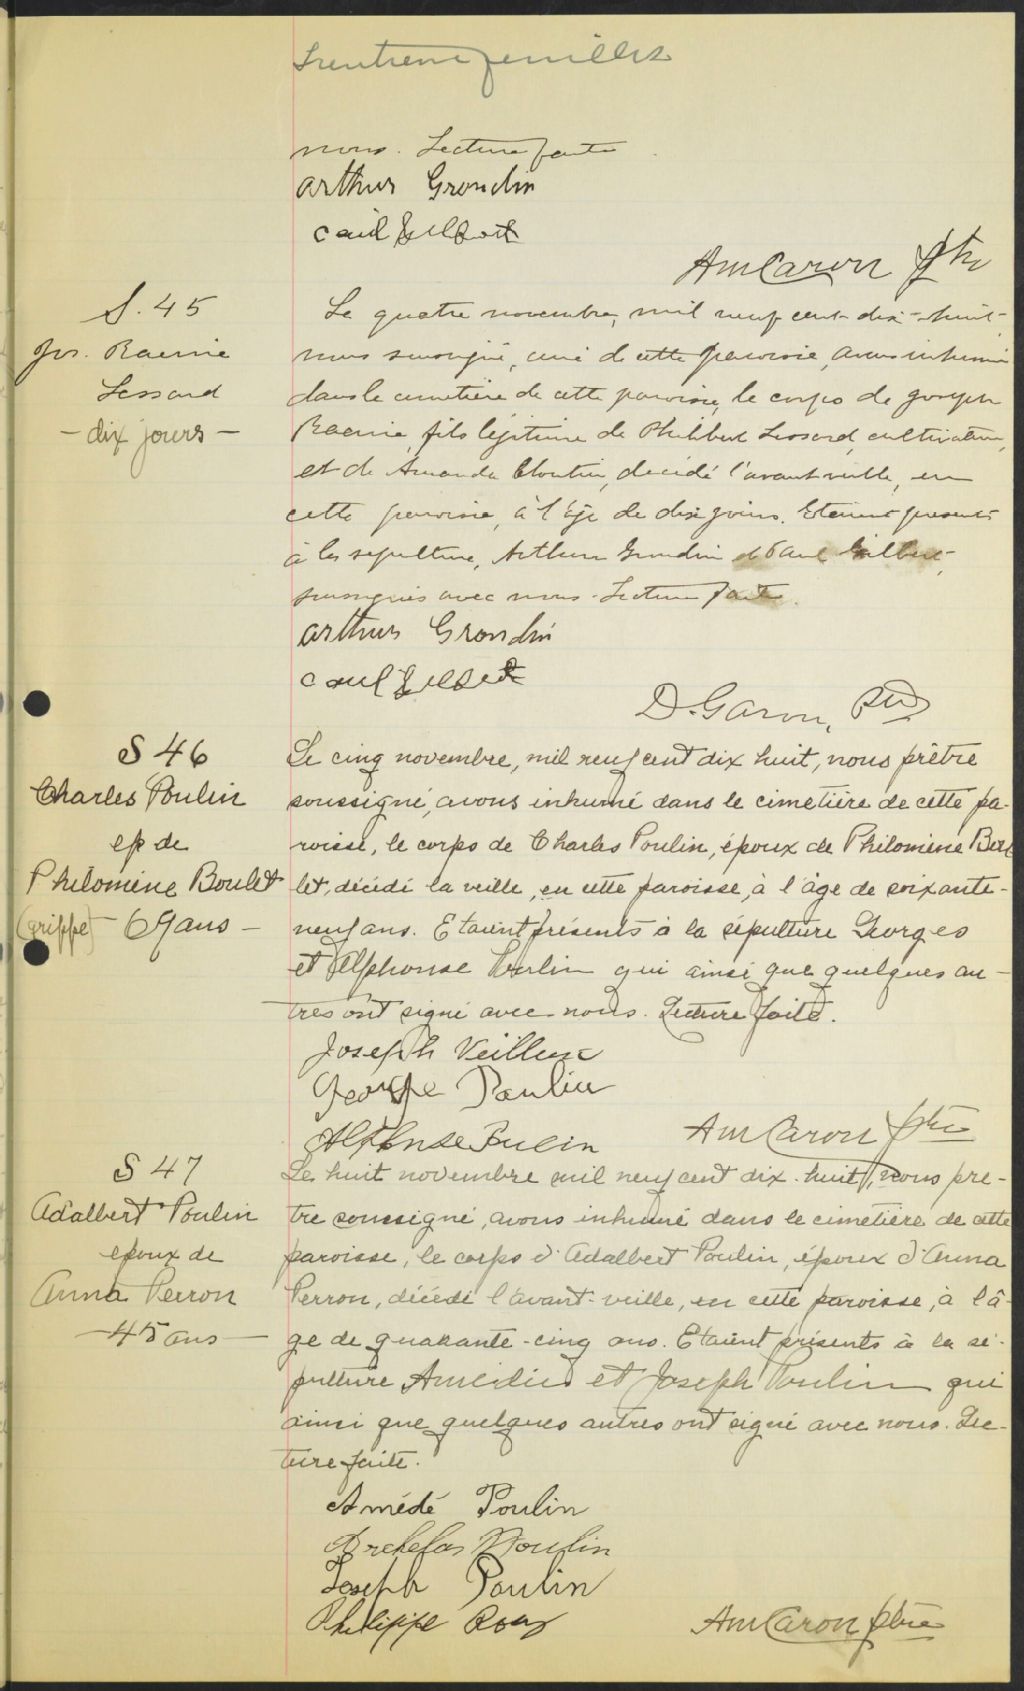 Trentième feuillet
nous. Lecture faite
Arthur Grondin
Paul Gilbert
Am Caron ptre
S. 45
Le quatre novembre, mil neuf cent dix-huit
Jos. Racine
nous soussigné, curé de cette paroisse, avons inhumé
Lessard
dans le cimetière de cette paroisse, le corps de Joseph
— dix jours —
Racine, fils légitime de Philibert Lessard, cultivateur,
et de Amanda Cloutier, décédé l'avant veille, en
cette paroisse, à l'âge de dix jours. Etaient présents
à la sépulture, Arthur Grondin et Paul Gilbert,
soussignés avec nous. Lecture faite.
Arthur Grondin
Paul Gilbert
D. Garon, Ptre
S 46
Le cinq novembre, mil neuf cent dix huit, nous prêtre
Charles Poulin
soussigné, avons inhumé dans le cimetière de cette pa-
ep de
roisse, le corps de Charles Poulin, époux de Philomène Bou
Philomène Boulet
let, décédé la veille, en cette paroisse, à l'âge de soixante-
(grippe) — 69 ans —
neuf ans. Etaient présents à la sépulture Georges
et Alphonse Poulin qui ainsi que quelques au-
tres ont signé avec nous. Lecture faite.
Joseph Veilleux
George Poulin
Alfonse Poulin
Am Caron ptre
S 47
Le huit novembre mil neuf cent dix-huit, nous prê-
Adalbert Poulin
tre soussigné, avons inhumé dans le cimetière de cette
époux de
paroisse, le corps d'Adalbert Poulin, époux d'Anna
Anna Perron
Perron, décédé l'avant-veille, en cette paroisse, à l'â-
— 45 ans —
ge de quarante-cinq ans. Etaient présents à la sé-
pulture Amédée et Joseph Poulin qui
ainsi que quelques autres ont signé avec nous. Lec-
ture faite.
Amédé Poulin
Archelas Poulin
Joseph Poulin
Philippe Roy
Am Caron ptre